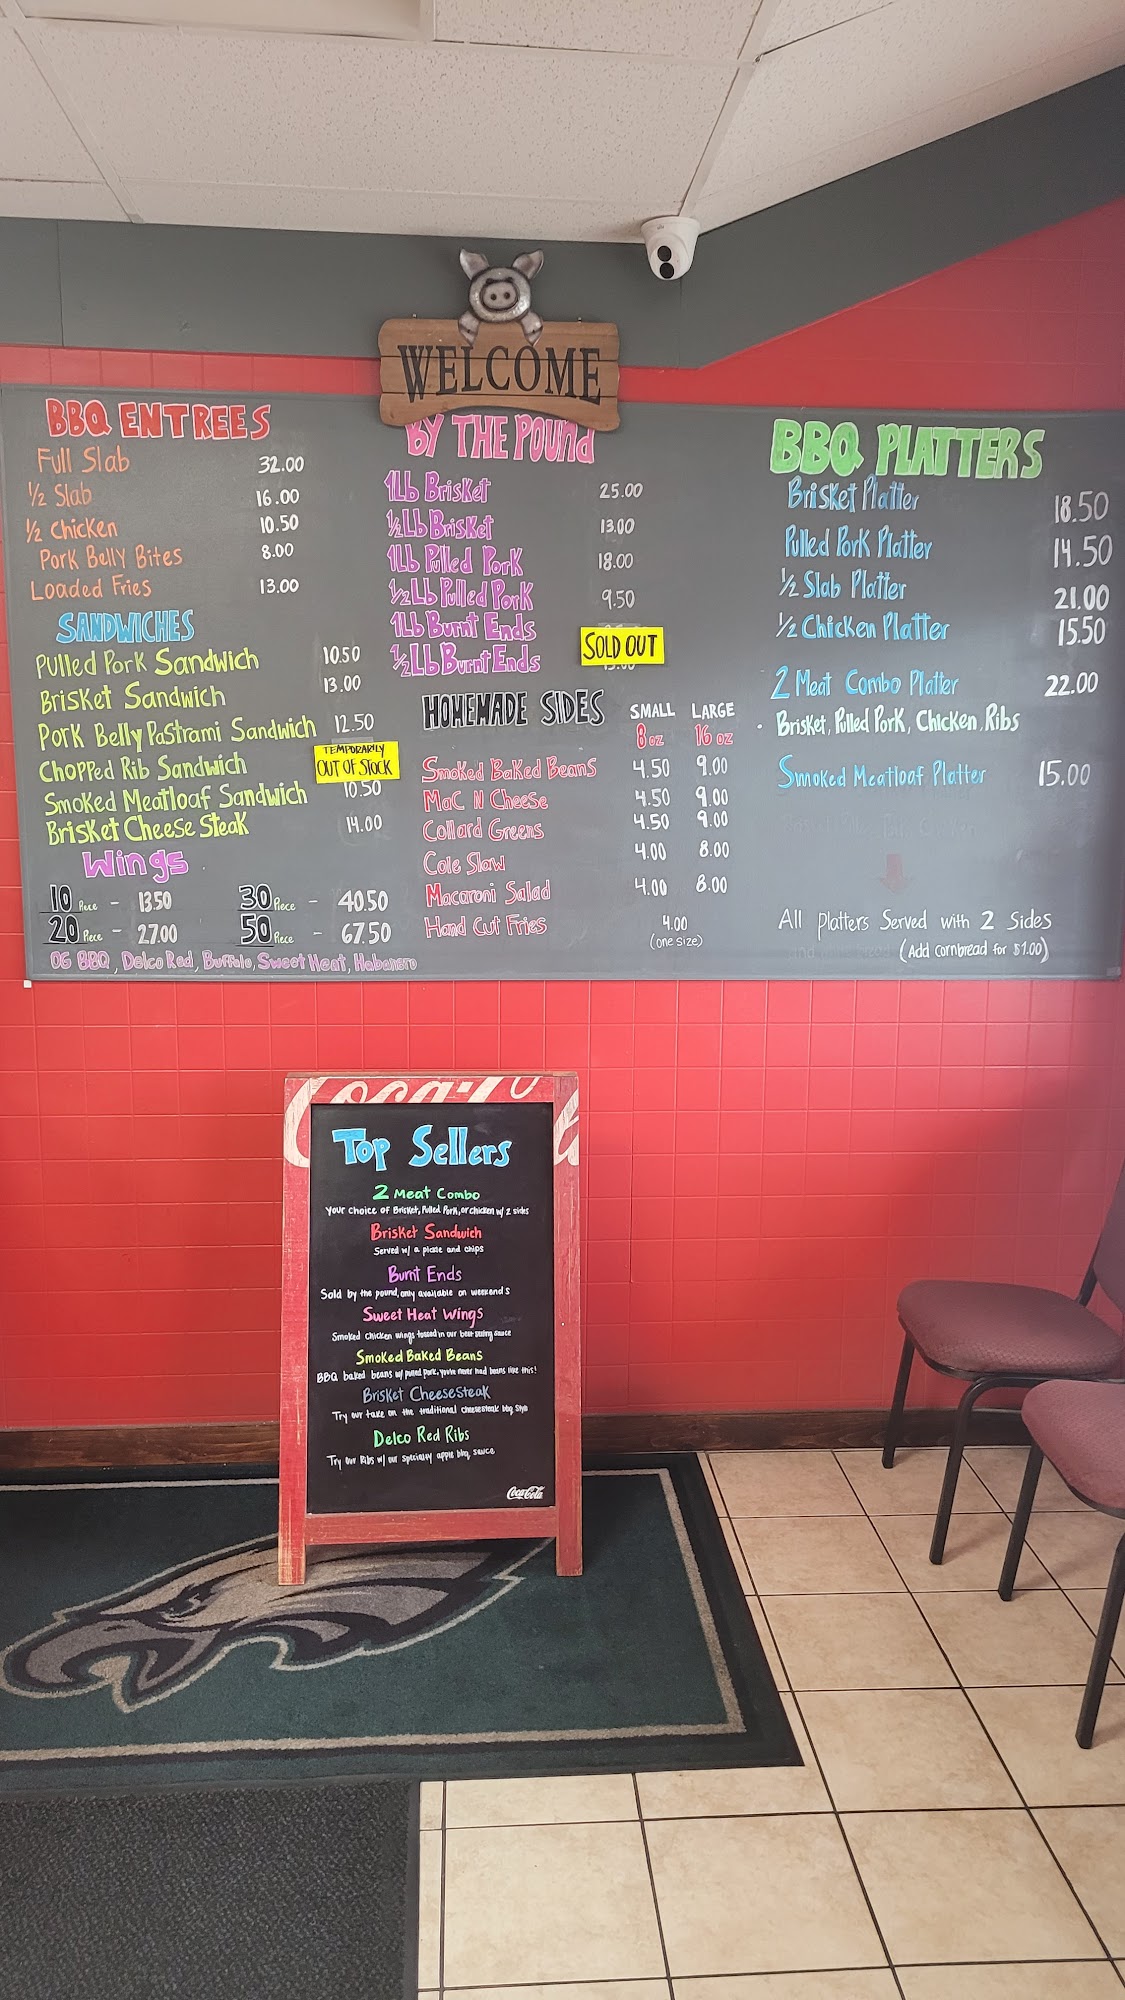 WELCOME
BBQ ENTREES
Full Slab 32.00
½ Slab 16.00
½ Chicken 10.50
Pork Belly Bites 8.00
Loaded Fries 13.00
SANDWICHES
Pulled Pork Sandwich 10.50
Brisket Sandwich 13.00
Pork Belly Pastrami Sandwich 12.50
Chopped Rib Sandwich
TEMPORARILY
OUT OF STOCK
Smoked Meatloaf Sandwich 10.50
Brisket Cheese Steak 14.00
Wings
10 Piece - 13.50 30 Piece - 40.50
20 Piece - 27.00 50 Piece - 67.50
OG BBQ, Delco Red, Buffalo, Sweet Heat, Habanero
BY THE POUND
1Lb Brisket 25.00
½Lb Brisket 13.00
1Lb Pulled Pork 18.00
½Lb Pulled Pork 9.50
1Lb Burnt Ends
½Lb Burnt Ends
SOLD OUT
HOMEMADE SIDES SMALL LARGE
8 oz 16 oz
Smoked Baked Beans 4.50 9.00
Mac N Cheese 4.50 9.00
Collard Greens 4.50 9.00
Cole Slaw 4.00 8.00
Macaroni Salad 4.00 8.00
Hand Cut Fries 4.00
(one size)
BBQ PLATTERS
Brisket Platter 18.50
Pulled Pork Platter 14.50
½ Slab Platter 21.00
½ Chicken Platter 15.50
2 Meat Combo Platter 22.00
Brisket, Pulled Pork, Chicken, Ribs
Smoked Meatloaf Platter 15.00
All Platters Served with 2 Sides
(Add cornbread for $1.00)
Coca-Co
Top Sellers
2 Meat Combo
Your choice of Brisket, Pulled Pork, or chicken w/ 2 sides
Brisket Sandwich
Served w/ a pickle and chips
Burnt Ends
Sold by the pound, only available on weekends
Sweet Heat Wings
Smoked chicken wings tossed in our best selling sauce
Smoked Baked Beans
BBQ baked beans w/ pulled pork, you've never had beans like this!
Brisket Cheesesteak
Try our take on the traditional cheesesteak bbq style
Delco Red Ribs
Try our Ribs w/ our specialty apple bbq sauce
Coca-Cola